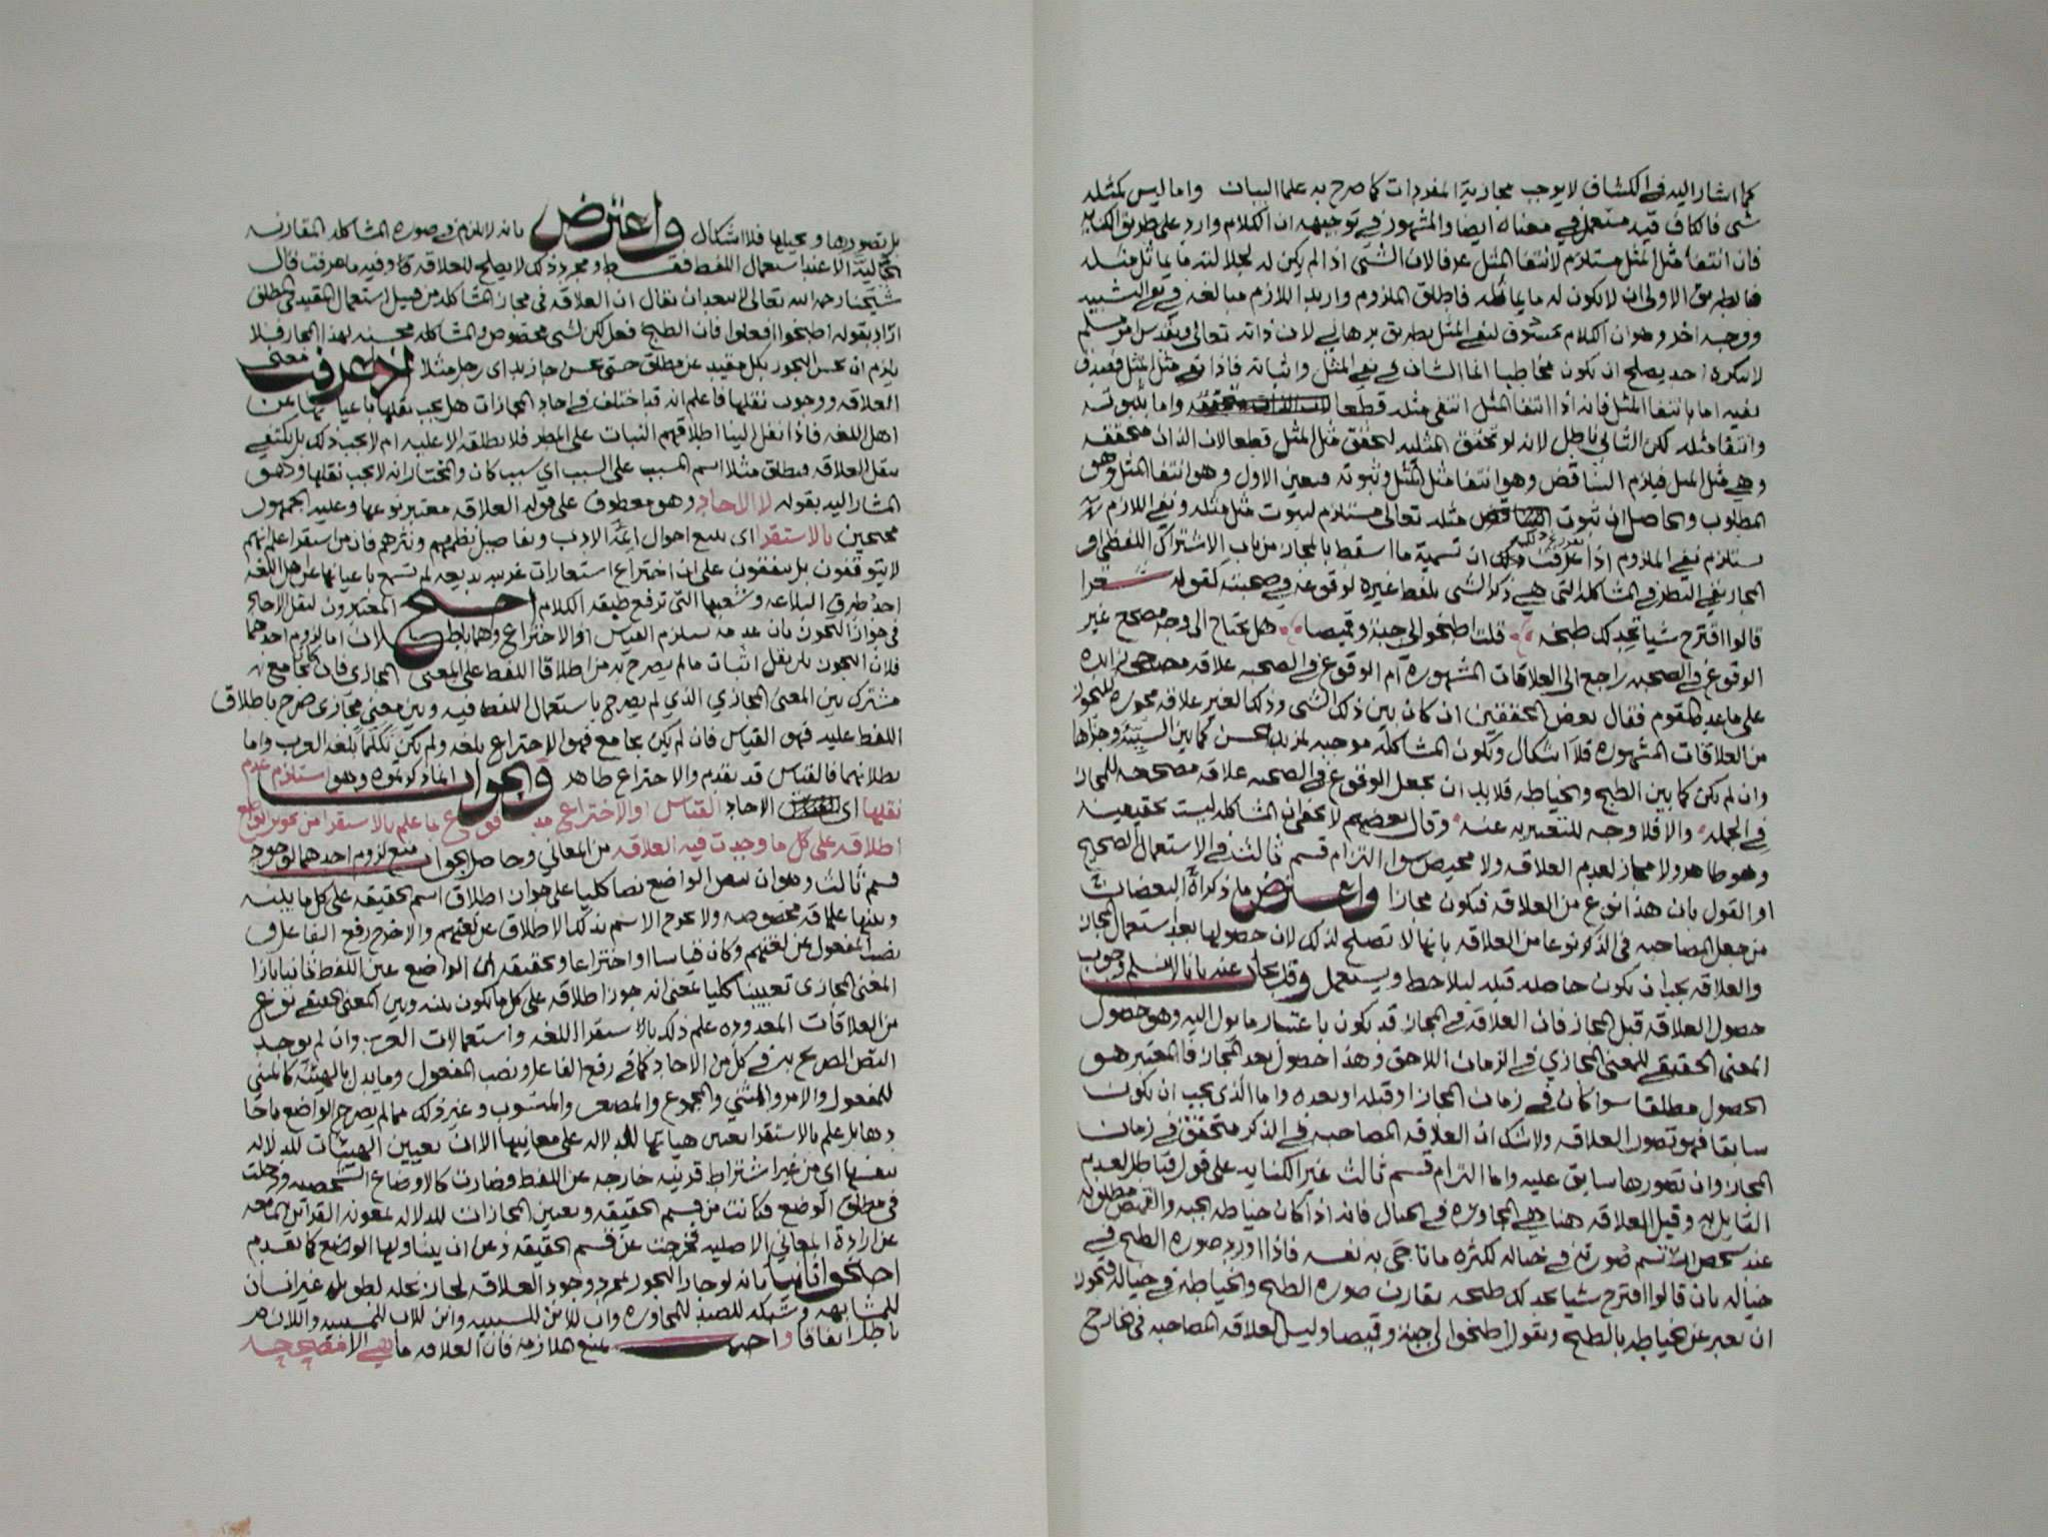 كما اشار اليه في الكشاف لا يوجب مجازية المفردات كما صرح به علما البيان واما ليس كمثله
شي فالكاف فيه مستعمل في معناه ايضا والمشهور في توجيهه ان الكلام وارد على طريق الكنايه
فان انتفا مثل المثل مستلزم لانتفا المثل عرفا لان الشي اذا لم يكن له لجلالته ما يماثل مثله
فبطريق الاولى ان لا يكون له ما يماثله فاطلق الملزوم واريد اللازم مبالغه في نفي التشبيه
ووجه اخر وهو ان الكلام مسوق لنفي المثل بطريق برهاني لان ذاته تعالى وتقدس امر مسلم
لا ينكره احد يصلح ان يكون مخاطبا انما الشان في نفي المثل واثباته فاذا نفي مثل المثل فقصد في
نفيه اما بانتفا المثل فانه اذا انتفا المثل انتفى مثله قطعا واما بثبوته
وانتفا مثله لكن التالي باطل لانه لو تحقق المثليه لتحقق مثل المثل قطعا لان الذات متحققه
وهي مثل المثل فيلزم التناقض وهو انتفا مثل المثل وثبوته فتعين الاول وهو انتفا المثل وهو
المطلوب والحاصل ان ثبوت مثله تعالى مستلزم لثبوت مثل مثله ونفي اللازم
يستلزم نفي الملزوم اذا عرفت ان تسمية ما اسقط بالمجاز من باب الاشتراك اللفظي او
المجاز بقي النظر في المشاكله التي هي ذكر الشي بلفظ غيره لوقوعه في صحبته كقوله شعرا
قالوا اقترح شيا نجد لك طبخه قلت اطبخوا لي جبة وقميصا هل يحتاج الى وجه مصحح غير
الوقوع في الصحبه راجع الى العلاقات المشهوره ام الوقوع في الصحبه علاقه مصححه زايده
على ما عده القوم فقال بعض المحققين ان كان بين ذلك الشي وذلك الغير علاقه مجوزه للتجوز
من العلاقات المشهوره فلا اشكال وتكون المشاكله موجبه لمزيد الحسن كما بين السيئه وجزاها
وان لم يكن كما بين الطبخ والخياطه فلا بد ان يجعل الوقوع في الصحبه علاقه مصححه للمجاز
في الجمله والا فلا وجه للتعبير به عنه وقال بعضهم لا يخفى ان المشاكله ليست بحقيقيه
وهو ظاهر ولا مجاز لعدم العلاقه ولا محيص سوا التزام قسم ثالث في الاستعمال الصحيح
او القول بان هذا نوع من العلاقه فتكون مجازا واعترض ما ذكراه البعضان
من جعل المصاحبه في الذكر نوعا من العلاقه بانها لا تصلح لذلك لان حصولها بعد استعمال المجاز
والعلاقه يجب ان تكون حاصله قبله ليلاحظ ويستعمل وقد يجاب عنه بانا لا نسلم وجوب
حصول العلاقه قبل المجاز فان العلاقه في المجاز قد يكون باعتبار ما يول اليه وهو حصول
المعنى الحقيقي للمعنى المجازي في الزمان اللاحق وهذا حصول بعد المجاز فالمعتبر هو
الحصول مطلقا سوا كان في زمان المجاز او قبله او بعده واما الذي يجب ان يكون
سابقا فهو تصور العلاقه ولا شك ان العلاقه المصاحبه في الذكر متحقق في زمان
المجاز وان تصورها سابق عليه واما التزام قسم ثالث غير الكنايه على قول فباطل لعدم
القايل به وقيل العلاقه هنا هي المجاوره في الخيال فانه اذا كان خياطه الجبه والقميص مطلوبه
عند شخص ارتسم صورته في خياله لكثره ما تناجى به نفسه فاذا اورد صوره الطبخ في
خياله بان قالوا اقترح شيا نجد لك طبخه يقارن صوره الطبخ والخياطه في خياله فتجوز
ان يعبر عن خياطه بالطبخ ويقول اطبخوا لي جبة وقميصا وليس العلاقه المصاحبه في الخارج
بل تصورها وتخيلها فلا اشكال واعترض بانه لا يلزم في صوره المشاكله المقارنه
الخياليه الا عند استعمال اللفظ فقط ومجرد ذلك لا يصلح للعلاقه كا وفيه ما عرفت قال
شيخنا رحمه الله تعالى لا يبعد ان يقال ان العلاقه في مجاز المشاكله من قبيل استعمال المقيد في المطلق
اراد بقوله اطبخوا افعلوا فان الطبخ فعل لكن لشي مخصوص والمشاكله محسنه لهذا المجاز فلا
يلزم ان يحسن التجوز بكل مقيد عن مطلق حتى يحسن جا زيد اي رجل مثلا اذا عرفت معنى
العلاقه ووجوب نقلها فاعلم انه قد اختلف في احاد المجازات هل يجب نقلها باعيانها عن
اهل اللغه فاذا نقل الينا اطلاقهم النبات على المطر فلا نطلقه الا عليه ام لا يجب ذلك بل يكتفي
بنقل العلاقه فيطلق مثلا اسم المسبب على السبب اي سبب كان والمختار انه لا يجب نقلها وهو
المشار اليه بقوله لا الاحاد وهو معطوف على قوله العلاقه معتبر نوعها وعليه الجمهور
محتجين بالاستقرا اي تتبع احوال ائمة الادب وتفاصيل نظمهم ونثرهم فان من استقرا علم انهم
لا يتوقفون بل يتفقون على ان اختراع استعارات غريبه بديعه لم تسمع باعيانها عن اهل اللغه
احد طرق البلاغه وشعبها التي ترفع طبقه الكلام احتج المعتبرون لنقل الاحاد
في جواز التجوز بان عدمه يستلزم القياس او الاختراع وهما باطلان اما لزوم احدهما
فلان التجوز بلا نقل اثبات ما لم يصرح به من اطلاق اللفظ على المعنى المجازي فان كان لجامع
مشترك بين المعنى المجازي الذي لم يصرح باستعمال اللفظ فيه وبين معنى مجازي صرح باطلاق
اللفظ عليه فهو القياس فان لم يكن بجامع فهو الاختراع بلغه ولم يكن تكلما بلغه العرب واما
بطلانهما فالقياس قد تقدم والاختراع ظاهر والجواب ان ما ذكرتموه وهو استلزام عدم
نقلها اي الاحاد القياس او الاختراع مدفوع بما علم بالاستقرا من تجويز الواضع
اطلاقه على كل ما وجدت فيه العلاقه من المعاني وحاصل الجواب منع لزوم احدهما لوجود
قسم ثالث وهو ان ينص الواضع نصا كليا على جواز اطلاق اسم الحقيقه على كل ما بينه
وبينها علاقه مخصوصه ولا يخرج الاسم بذلك الاطلاق عن لغتهم والا خرج رفع الفاعل و
نصب المفعول عن لغتهم وكان قياسا او اختراعا وتحقيقه ان الواضع عين اللفظ ثانيا بازا
المعنى المجازي تعيينا كليا بمعنى انه جوز اطلاقه على كل ما يكون بينه وبين المعنى الحقيقي نوع
من العلاقات المعدوده علم ذلك بالاستقرا اللغه واستعمالات العرب وان لم يوجد
النص المصرح به في كل من الاحاد كما في رفع الفاعل ونصب المفعول وما يدل بالهيئة كالمبني
للمفعول والامر والمثنى والمجموع والمصغر والمنسوب وغير ذلك مما لم يصرح الواضع باحا
دها بل علم بالاستقرا تعيين هياتها للدلاله على معانيها الا ان تعيين الهيئات للدلاله
بنفسها اي من غير اشتراط قرينه خارجه عن اللفظ فصارت كالاوضاع الشخصيه ودخلت
في مطلق الوضع فكانت من قسم الحقيقه وتعيين المجازات للدلاله بمعونه القراين المانعه
عن ارادة المعاني الاصليه فخرجت عن قسم الحقيقه وعن ان يتناولها الوضع كما تقدم
احتجوا ثانيا بانه لو جاز التجوز بمجرد وجود العلاقه لجاز نخله لطويل غير انسان
للمشابهه وشبكه للصيد للمجاوره واب للابن للسببيه وابن للاب للمسببيه واللازم
باطل اتفاقا واجيب بمنع الملازمه فان العلاقه ما هي الا مصححه